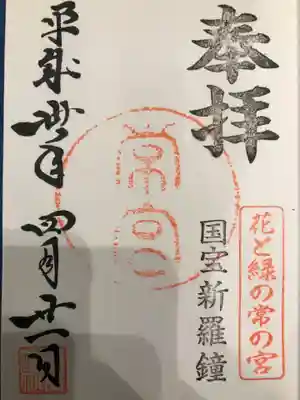 奉拝
花と緑の常の宮
国宝新羅鐘
常宮
平成卅年四月廿一日